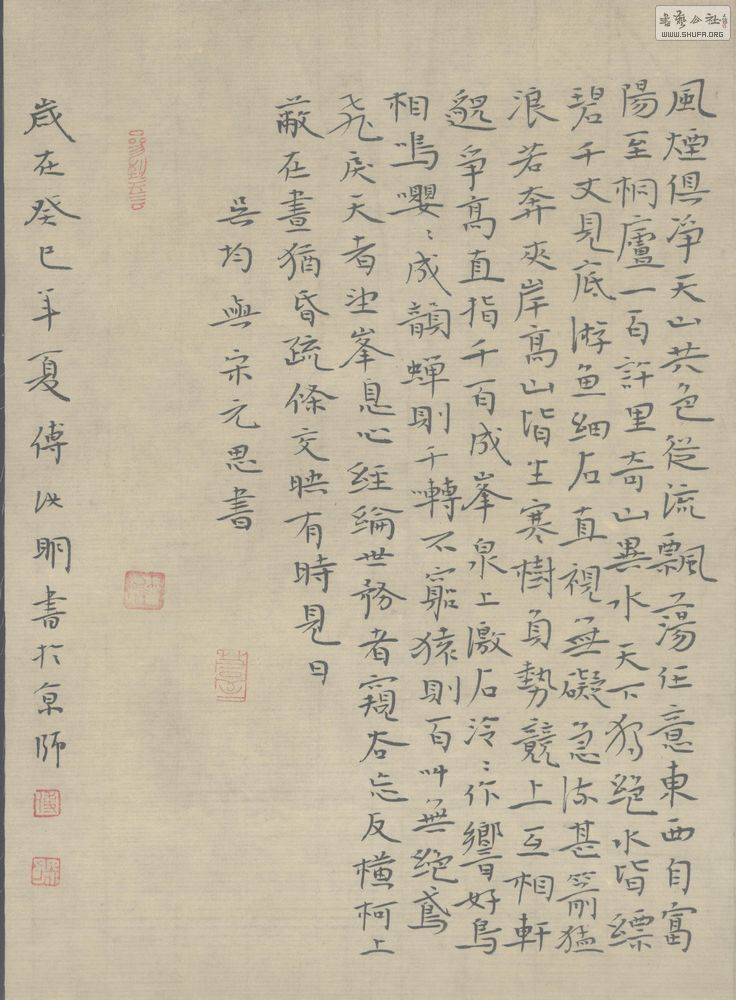 風煙俱淨天山共色從流飄蕩任意東西自富
陽至桐廬一百許里奇山異水天下獨絕水皆縹
碧千丈見底游魚細石直視無礙急湍甚箭猛
浪若奔夾岸高山皆生寒樹負勢競上互相軒
邈爭高直指千百成峯泉上激石泠〻作響好鳥
相鳴嚶〻成韻蟬則千轉不窮猿則百叫無絕鳶
飛戾天者望峯息心經綸世務者窺谷忘反橫柯上
蔽在晝猶昏疏條交映有時見日
吳均與宋元思書
歲在癸巳年夏傅洪明書於京師
書藝公社
WWW.SHUFA.ORG